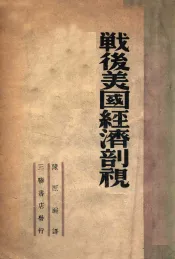 戰後美國經濟剖視
陳原編譯
三聯書店發行